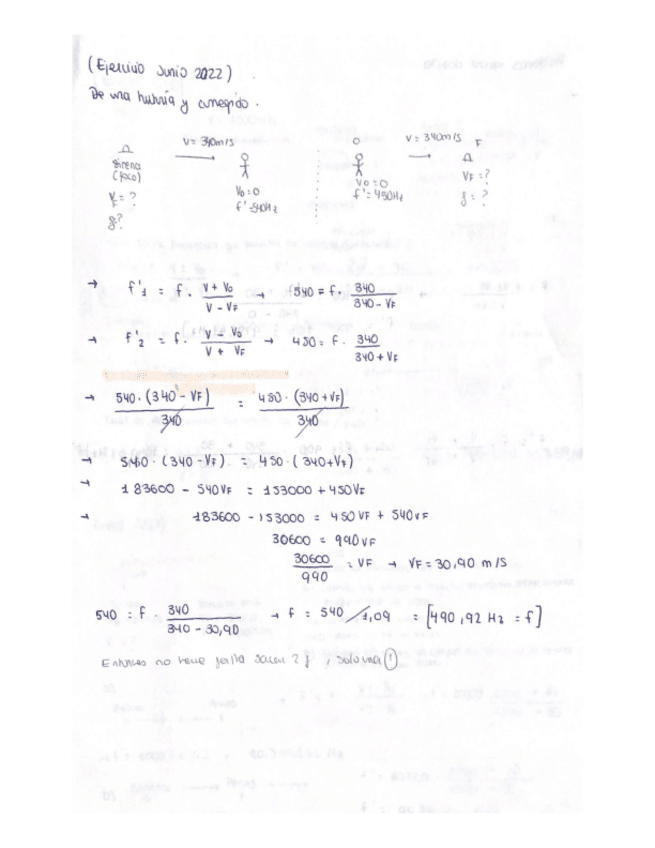 (Ejercicio Junio 2022).
De una huhnía y conegido.
V = 340m/s
Sirena
(foco)
VF = ?
f?
V0 = 0
f' = 540Hz
V = 340m/s F
V0 = 0
f' = 450Hz
VF = ?
f = ?
→ f'1 = f · (V + V0)/(V - VF) → 540 = f · 340/(340 - VF)
→ f'2 = f · (V - V0)/(V + VF) → 450 = f · 340/(340 + VF)
→ 540 · (340 - VF)/340 = 450 · (340 + VF)/340
→ 540 · (340 - VF) = 450 · (340 + VF)
→ 183600 - 540VF = 153000 + 450VF
→ 183600 - 153000 = 450VF + 540VF
30600 = 990VF
30600/990 = VF → VF = 30,90 m/s
540 = f · 340/(340 - 30,90) → f = 540/1,09 = [490,92 Hz = f]
Entonces no hace falta sacar 2 f, solo una (!)